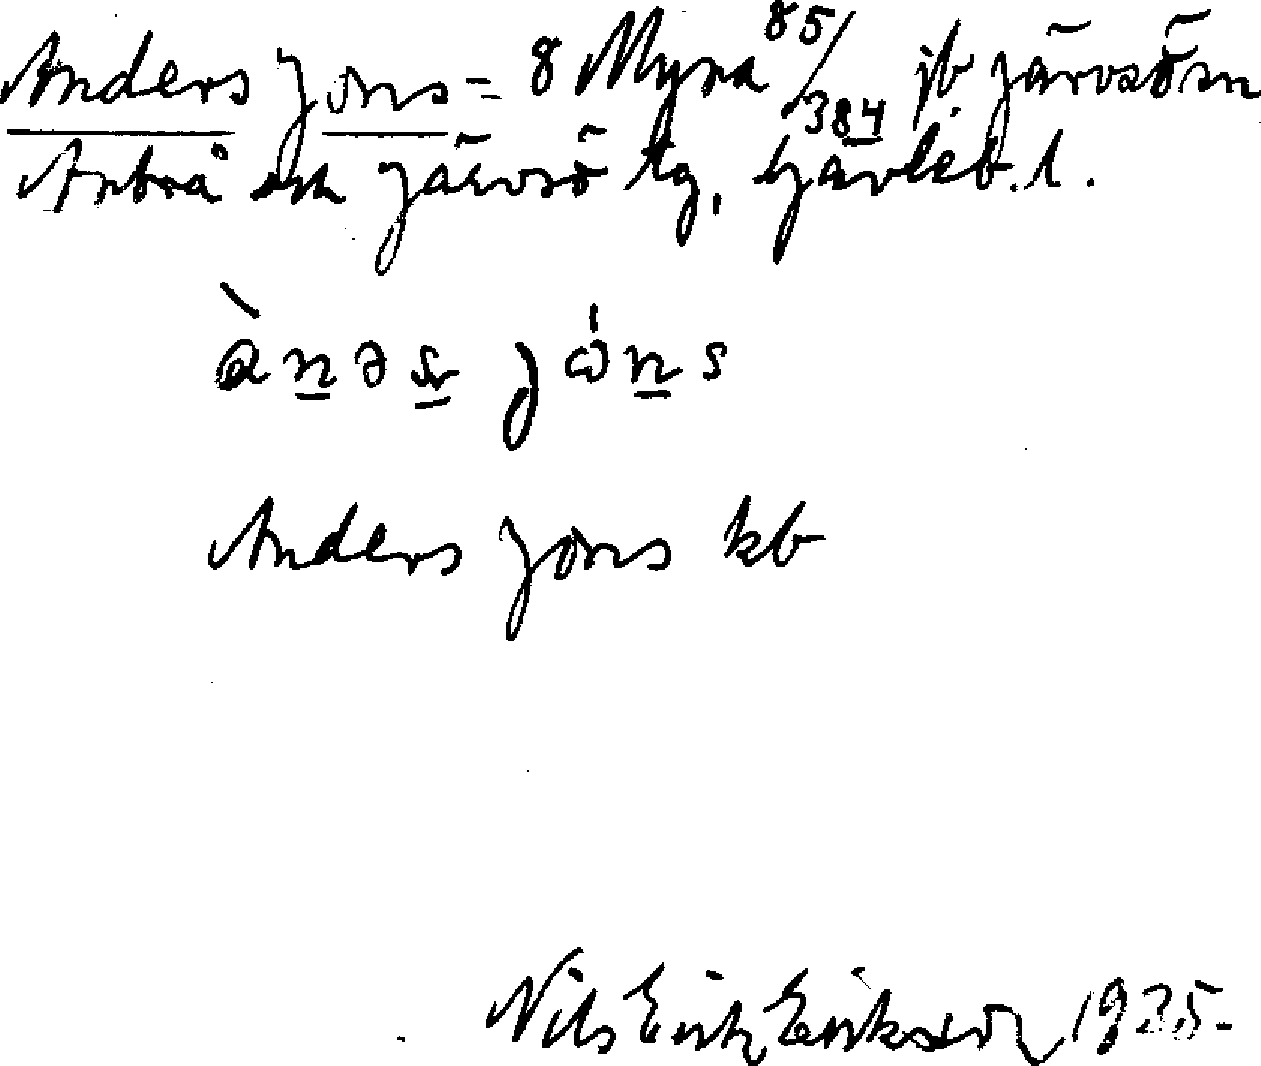 Anders Jons = 8 Myra 85/384 jb. Järvsö sn
Arbrå och Järvsö tg, Gävleb. l.
ànəs jóns
Anders Jons kb
Nils Erik Eriksson 1935.